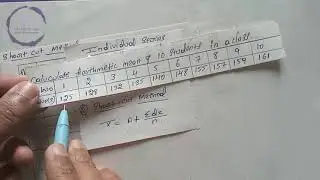 Short cut Method Individual Series
Calculate Arithmetic mean of 10 students in a class.
1 2 3 4 5 6 7 8 9 10
125 128 132 135 140 148 155 157 159 161
Short cut Method
X̄ = A + Σdx/n